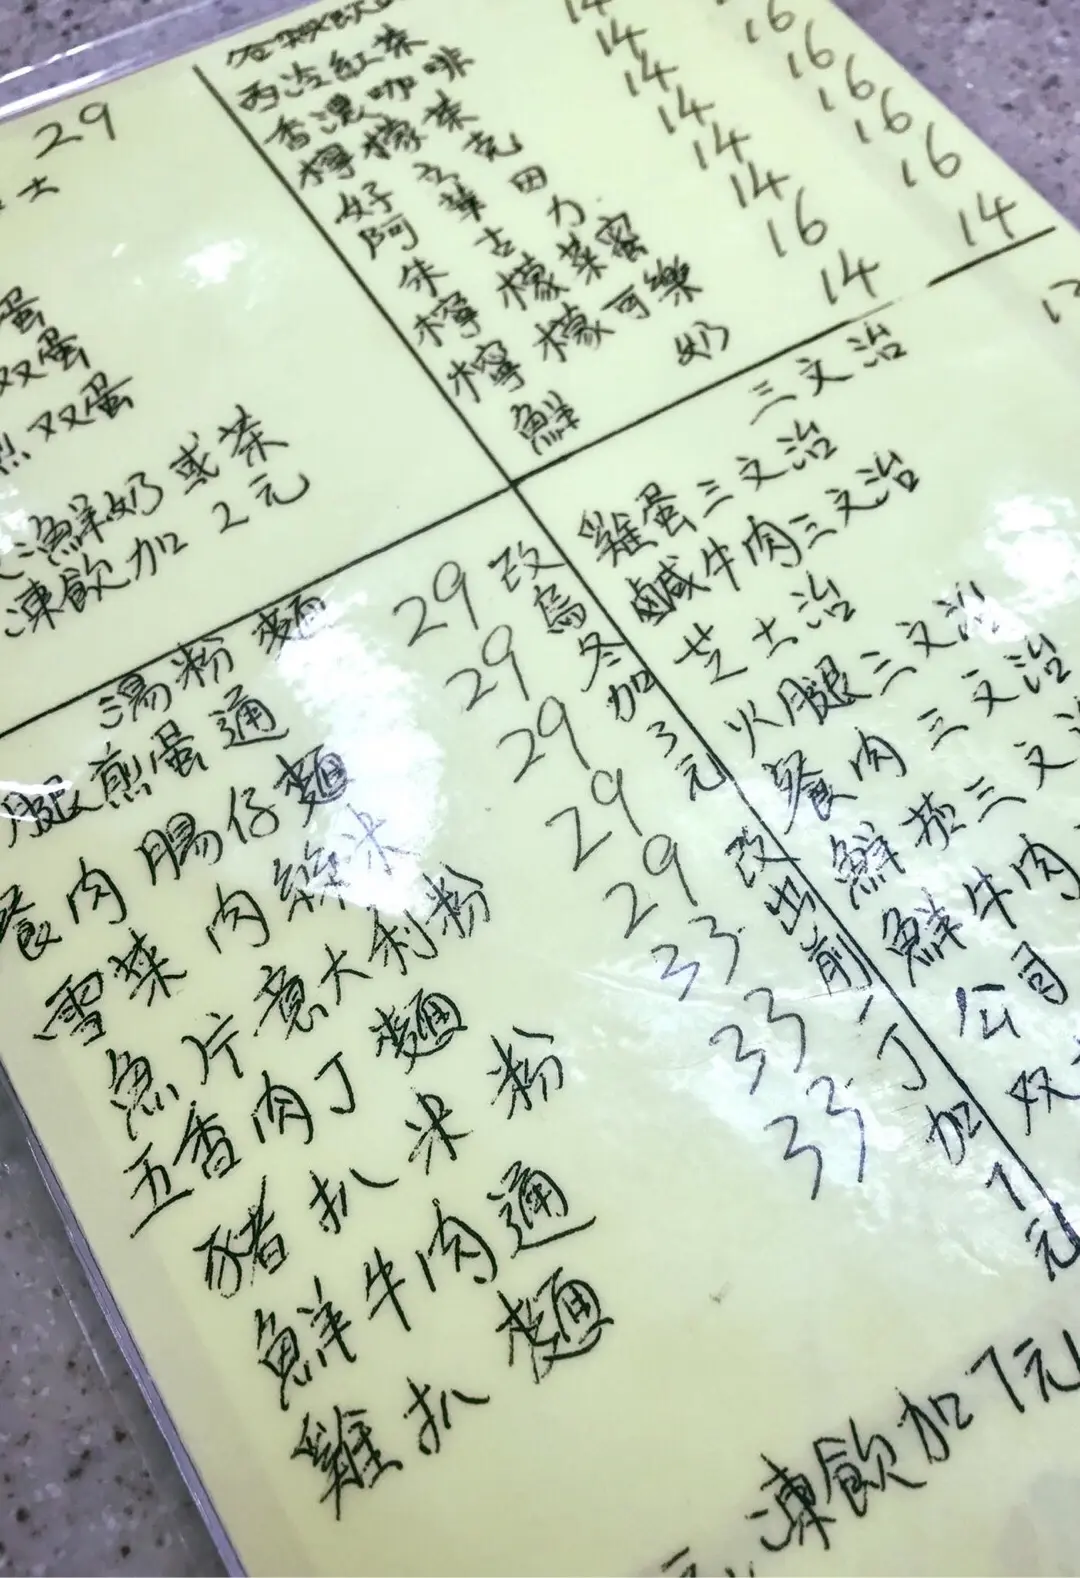 29
士
蛋
双蛋
煎双蛋
鮮奶或茶
凍飲加2元
各類飲品 14 16
西冷紅茶 14 16
香濃咖啡 14 16
檸檬茶 14 16
好立克 14 16
阿華田 14 16
朱古力 14
檸檬菜蜜 16
檸檬可樂
鮮奶 14 14
湯粉麵
腿煎蛋通 29
餐肉腸仔麵 29
雪菜肉絲米 29
魚片意大利粉 29
五香肉丁麵 29
豬扒米粉 33
鮮牛肉通 33
雞扒麵 33
改烏冬加3元
改出前一丁加7元
三文治
雞蛋三文治
鹹牛肉三文治
芝士治
火腿三文治
餐肉三文治
鮮茄三文治
鮮牛肉
公司
双
凍飲加7元